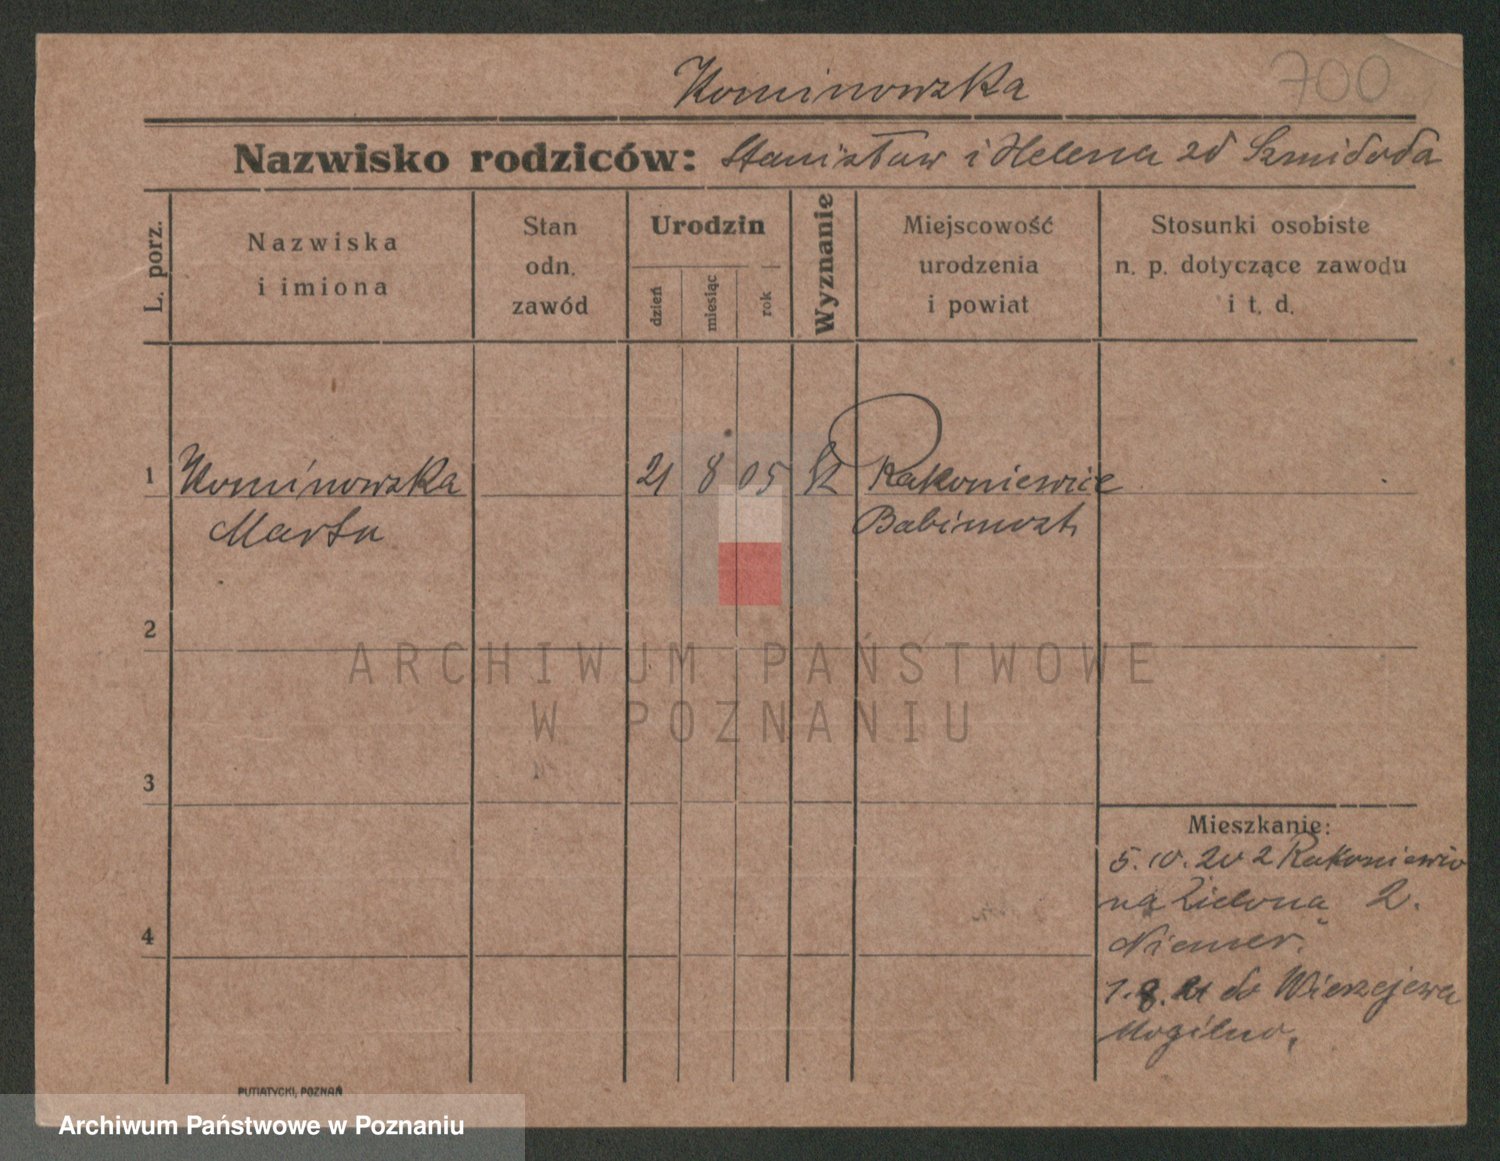 Kominowska
700
Nazwisko rodziców: Stanisław i Helena zd Szmidoda
L. porz.
Nazwiska
i imiona
Stan
odn.
zawód
Urodzin
dzień
miesiąc
rok
Wyznanie
Miejscowość
urodzenia
i powiat
Stosunki osobiste
n. p. dotyczące zawodu
i t. d.
1 Kominowska 21 8 05 Rakoniewice
Marta Babimost
2
ARCHIWUM PAŃSTWOWE
W POZNANIU
3
Mieszkanie:
5.10.20 z Rakoniewic
na Zieloną 2.
Niemer.
4
1.8.21 do Wierzejewa
Mogilno,
PUTIATYCKI, POZNAŃ
Archiwum Państwowe w Poznaniu